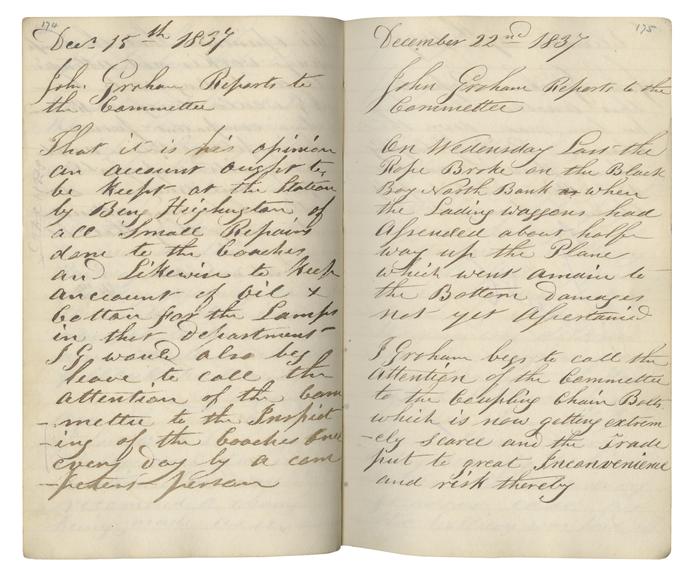 174
Decr 15th 1837
John Graham Reports to
the Committee
That it is his opinion
an account ought to,
be Keept at the Station
by Benj Heighington of
all Small Repairs
done to the Coaches
and Likewise to Keep
anccount of Oil &
Cotton for the Lamps
in that department
J G would also beg
leave to call the
attention of the Com
-mettee to the Inspect
-ing of the Coaches Once
every day by a com
-petent person
175
December 22nd 1837
John Graham Reports to the
Committee
On Wedensday Last the
Rope Broke on the Black
Boy North Bank as when
the Lading waggons had
Assended about halfe
way up the Plane
which went amain to
the Bottom Damages
not yet Assertained
J Graham begs to call the
Attention of the Committe
to the Coupling Chain Bolts
which is now getting extrem
-ely scarce and the Trade
put to great Inconvenience
and risk thereby